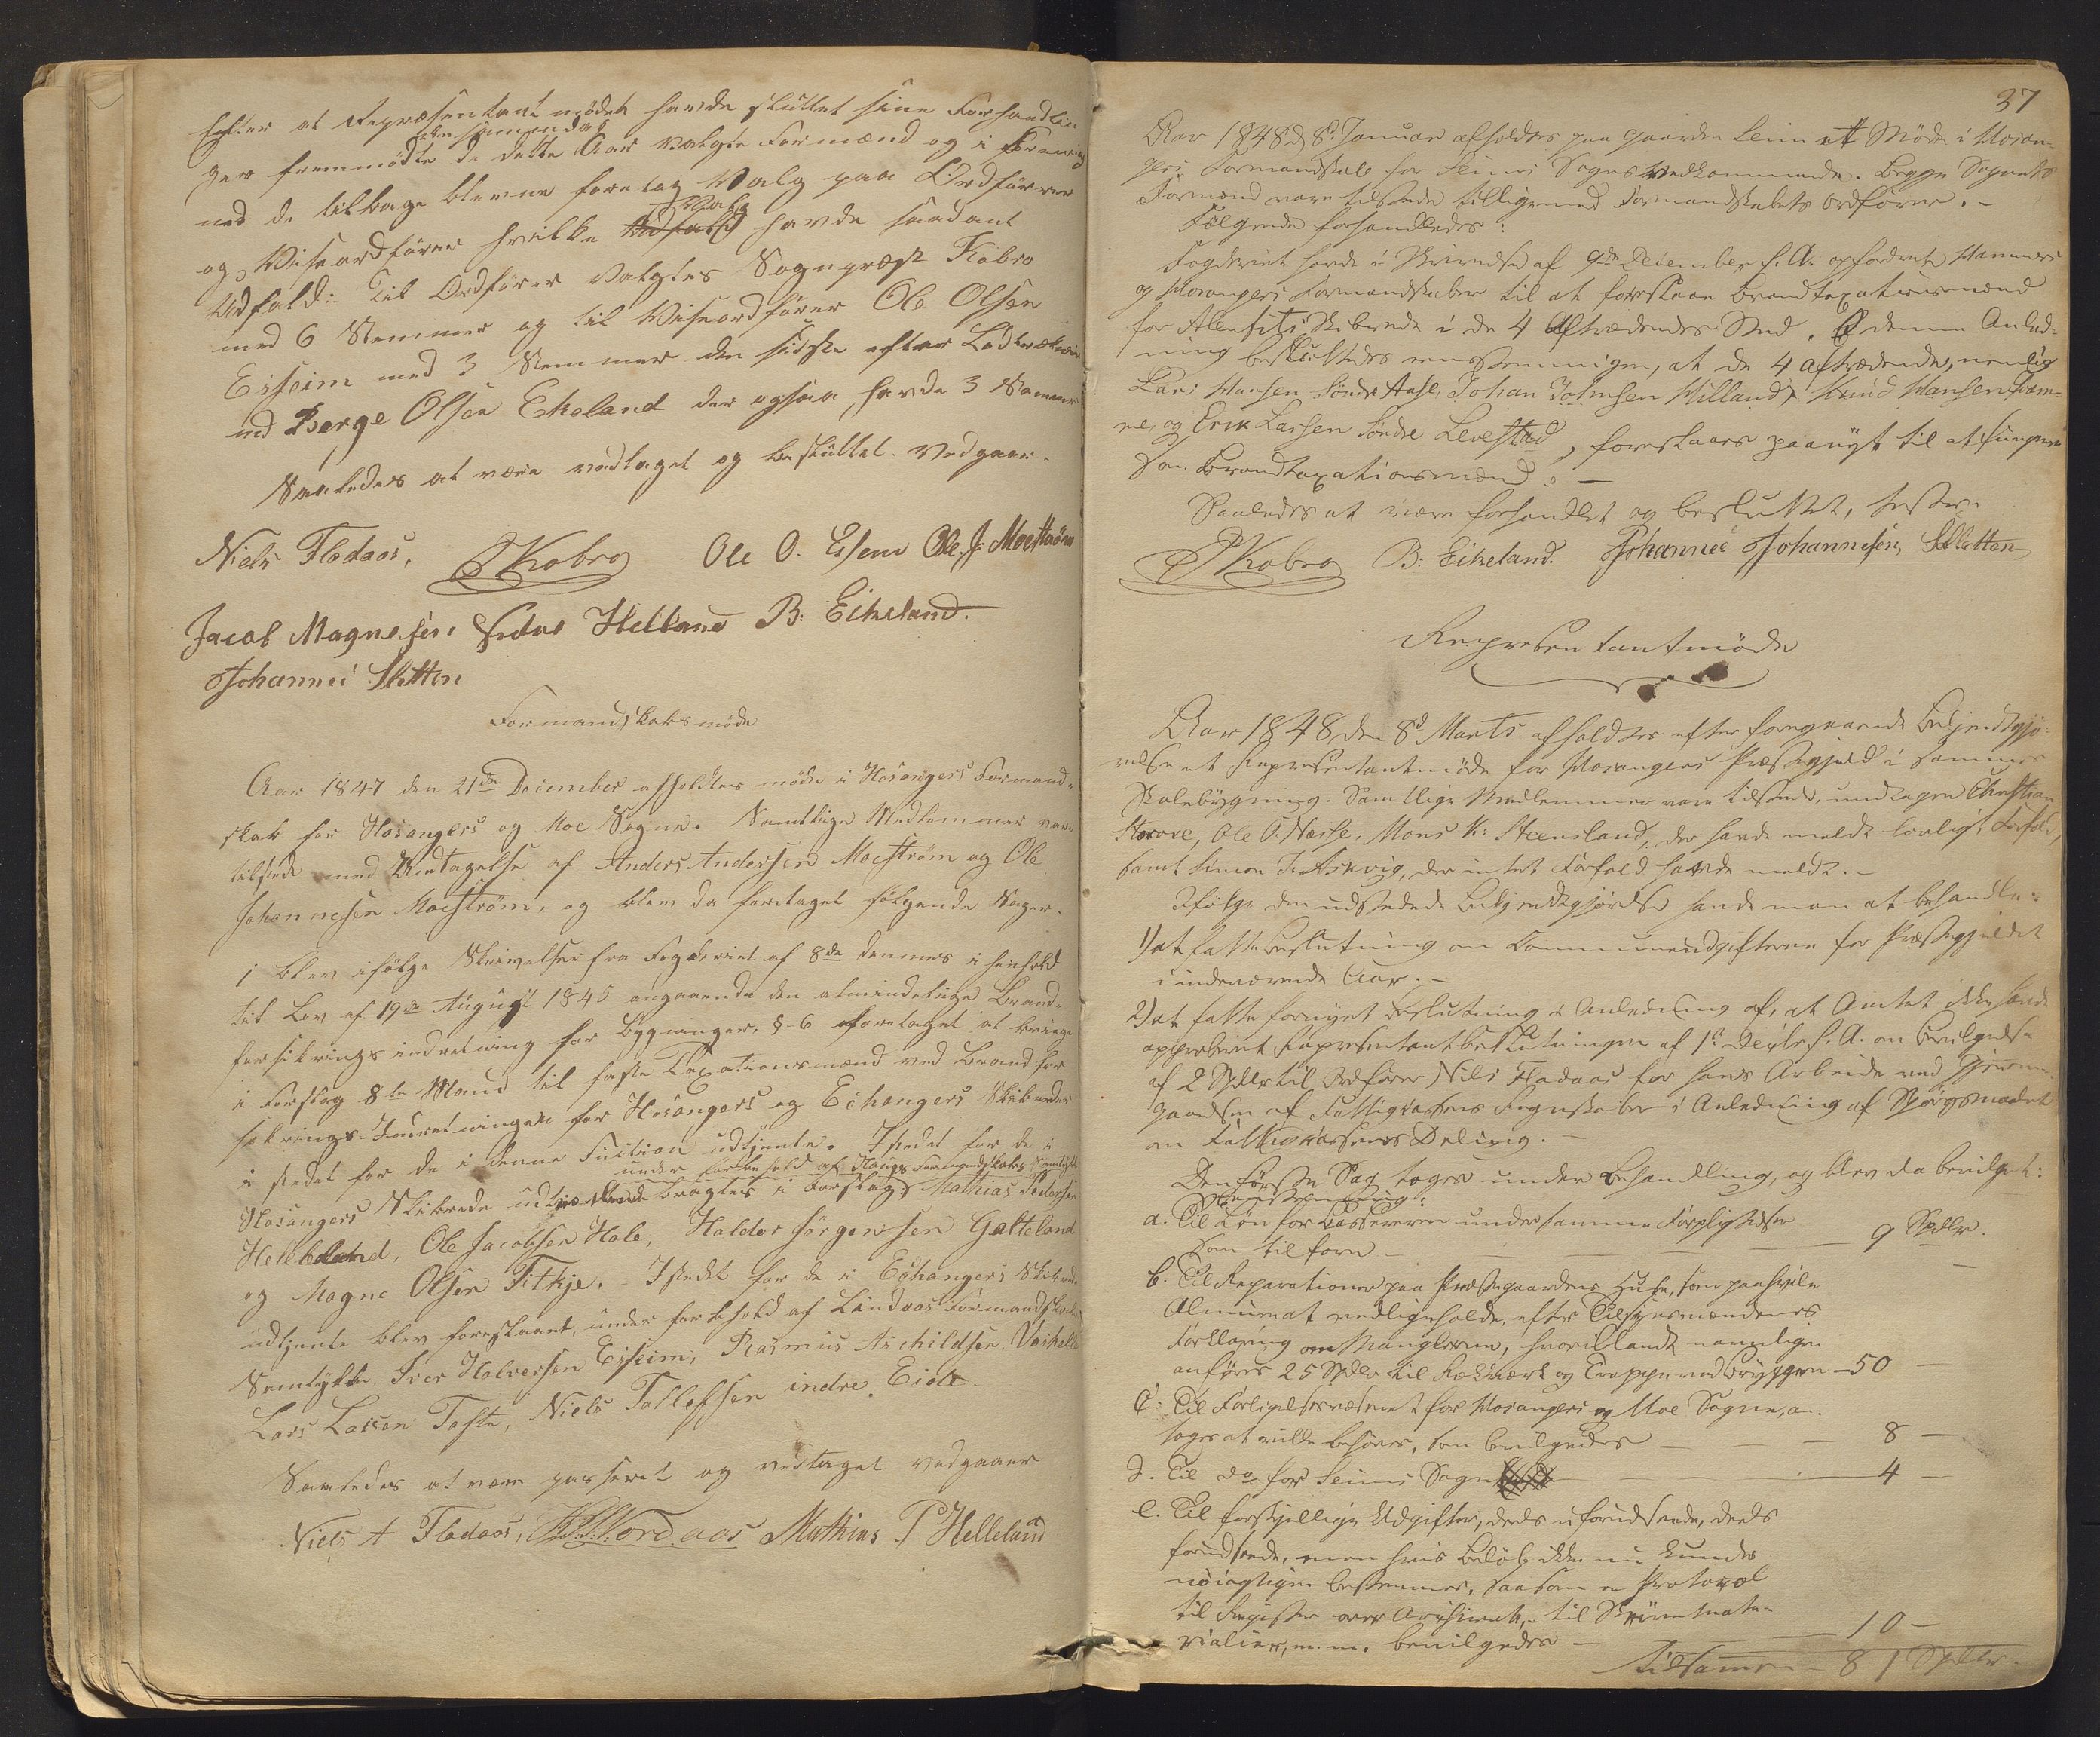 Efter at Repræsentantmødet havde sluttet sine Forhandlin-
ger fremmødte de dette Aar valgte Formænd og i Forening
med de tilbage blevne foretog Valg paa Ordfører
og Viseordfører hvilke Valg havde saadant
Udfald: Til Ordfører valgtes Sognepræst Kobro
med 6 Stemmer og til Viseordfører Ole Olsen
Eisseim med 3 Stemmer den sidste efter Lodtrækning
med Berge Olsen Ekeland der ogsaa havde 3 Stemmer
Saaledes at være vedtaget og besluttet vedgaar.
Niels Flodaas, Kobro Ole O. Eisem Ole J. Moestrøm
Jacob Magnesen Helland B: Eikeland.
Johannes Sletten
Formandskabsmøde
Aar 1847 den 21de December afholdtes møde i Hosangers Formand-
skab for Hosangers og Moe Sogne. Samtlige Medlemmer vare
tilstede med Undtagelse af Anders Andersen Moestrøm og Ole
Johannesen Moestrøm, og blev da foretaget følgende Sager.
1 blev ifølge Skrivelse fra Fogderiet af 8de dennes i henhold
til Lov af 19de August 1845 angaaende den almindelige Brand-
forsikringsindretning for Bygninger, §-6 foretaget at bringe
i Forslag 8te Mand til faste Taxationsmænd ved Brandfor-
sikrings-Indretningen for Hosangers og Echangers Skibreder
i stedet for de i denne Funtion udtjente. Istedet for de i
under forbehold af Haugs Formandskabs Samtykke
Hosangers Skibrede udtrædende bragtes i Forslag: Mathias Pedersen
Helleland, Ole Jacobsen Hole, Haldor Jørgensen Galteland
og Magne Olsen Titkje. - Istedet for de i Echangers Skibrede
udtjente blev foreslaaet, under forbehold af Lindaas Formandskabs
Samtykke, Iver Halversen Eisseim, Rasmus Aschildsen Veihelle
Lars Larsen Tofte, Niels Tollefsen indre Eide
Saaledes at være passeret og vedtaget vedgaaer
Niels A Flodaas, Nordaas Mathias P Helleland
37
Aar 1848 d 8de Januar afholdtes paa Gaarden Seim et Møde i Hosan-
gers Formandskab for Seims Sogns Vedkommende. Begge Sognets
Formænd vare tilstede tilligemed Formandskabets Ordfører. -
Følgende forhandledes:
Fogderiet havde i Skrivelse af 9de December f. A. opfordret Hammers
og Hosangers Formandskaber til at foreslaae Brandtaxationsmænd
for Alenfits Skibrede i de 4 Aftrædendes Sted. I denne Anled-
ning besluttedes eenstemmigen, at de 4 aftrædende, nemlig
Lars Hansen Søndr Aase, Johan Johnsen Hilland, Knud Hansen Fræm-
me, og Erik Larsen Søndre Levestad, foreslaaes paanyt til at fungere
som Brandtaxationsmænd. -
Saaledes at være forhandlet og besluttet, tester
Kobro B: Eikeland. Johannes Johannesen Sletten
Representantmøde
Aar 1848 den 8d Marts afholdtes efter foregaaende Bekjendtgjø-
relse et Representantmøde for Hosangers Præstegjeld i sammes
Skolebygning. Samtlige Medlemmer vare tilstede, undtagen Christian
Storove, Ole O. Næsse, Mons K: Steensland, der havde meldt lovligt Forfald,
samt Simon Askvig, der intet Forfald havde meldt. -
Ifølge den udstedede Bekjendtgjørelse havde man at behandle:
1) at fatte Beslutning om Communeudgifterne for Præstegjeldet
i indeværende Aar. -
2) at fatte fornyet Beslutning i Anledning af, at Amtet ikke havde
approberet Representantbeslutningen af 1st Decbr f. A. om Bevilgelse
af 2 Spdlr til Ordfører Niels Flodaas for hans Arbeide ved Gjennem-
gaaelsen af Fattigkassens Regnskaber i Anledning af Spørgsmaalet
om Fattigkassens Deling. -
Den første Sag toges under Behandling, og blev da bevilget:
a. Til Løn for Kassereren under samme Forpligtelser
som tilforn - 9 Spdlr.
b. Til Reparationer paa Præstegaardens Huse, som paahvile
Almuen at vedligeholde, efter Tilsynsmændenes
Forklaring om Manglerne, hvoriblandt nemligen
anføres 25 Spdlr til Rækværk og Trappe ved Bryggen - 50 -
C: Til Forligelsesvæsenet for Hosangers og Moe Sogne, an-
toges at ville behøves, som bevilgedes - 8 -
d. Til do for Seims Sogn - 4 -
e. Til forskjellige Udgifter, deels uforudseede, deels
forudseede, men hvis Beløb ikke nu kunde
nøiagtigen bestemmes, saasom en Protocol
til Register over Archivet, - til Skrivemate-
rialier, m. m. bevilgedes - 10 -
Tilsammen - 81 Spdlr.